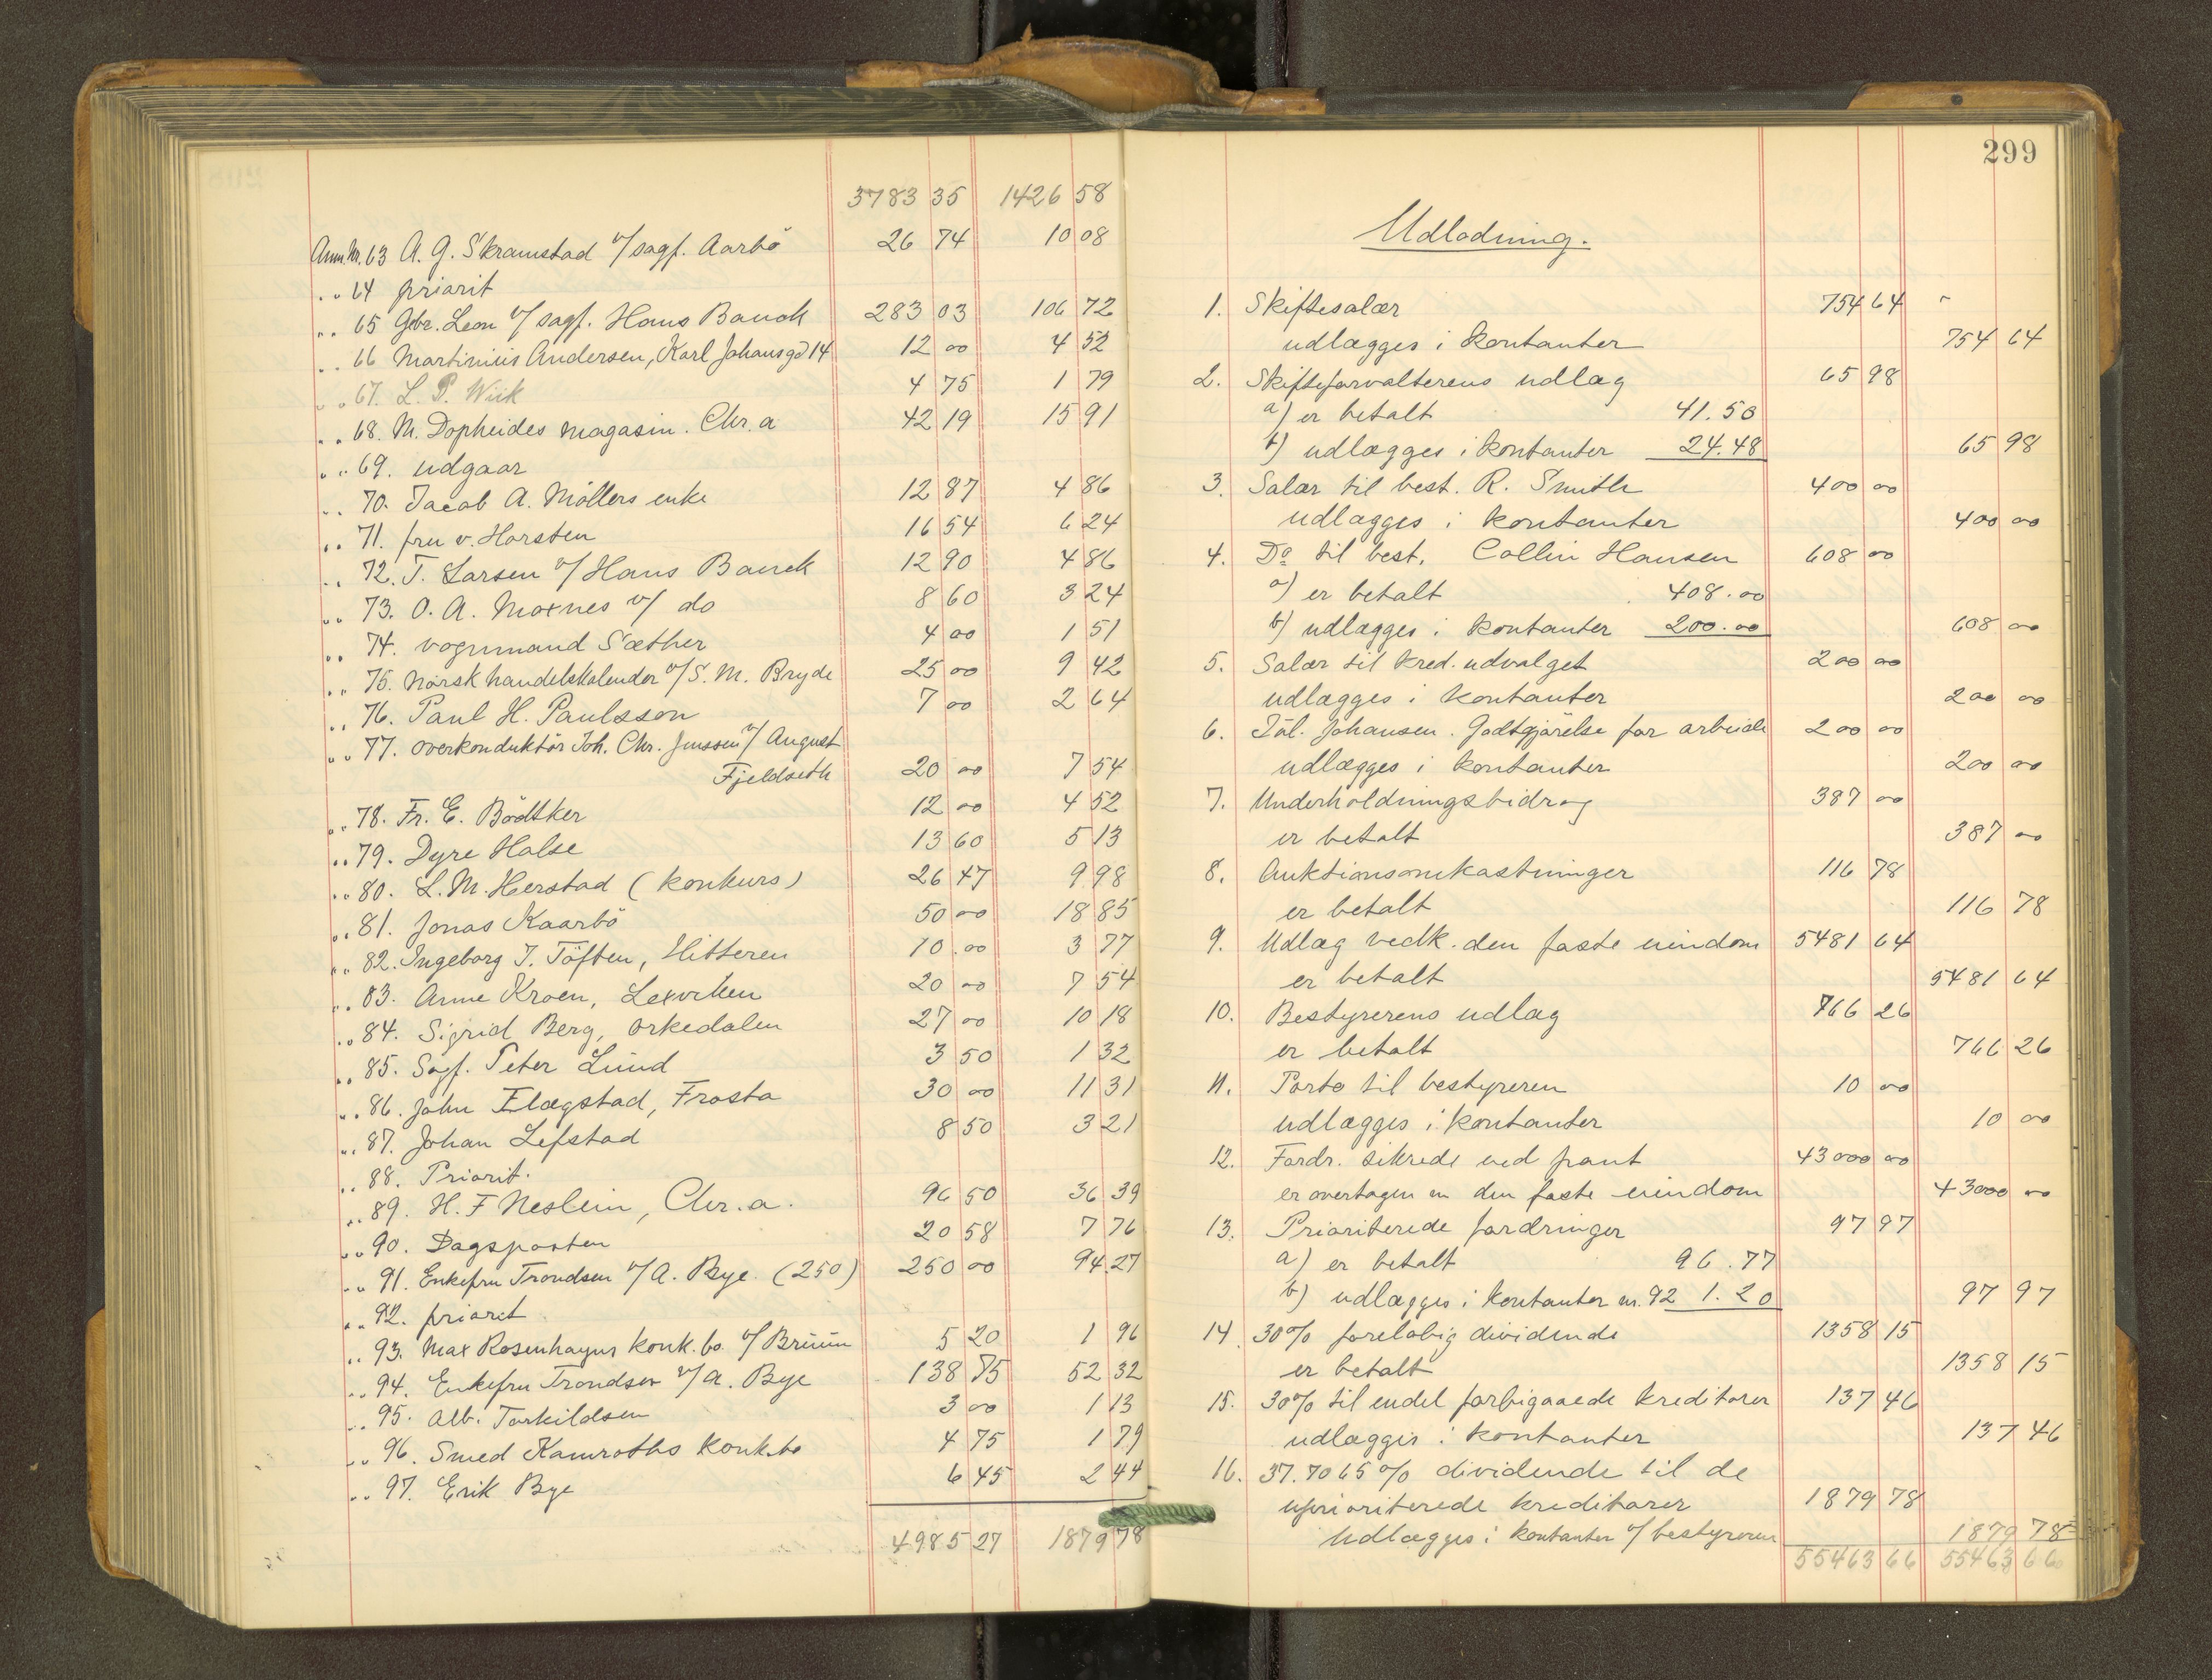 3783 35 1426 58
Anm. Nr. 63 A. G. Skramstad v/ sagf. Aarbö 26 74 10 08
" " 64 priorit
" " 65 Gbr. Leon v/ sagf. Hans Bauck 283 03 106 72
" " 66 Martinius Andersen, Karl Johansgd 14 12 00 4 52
" " 67. L. P. Wiik 4 75 1 79
" " 68. M. Dopheides magasin. Chr.a 42 19 15 91
" " 69. udgaar
" " 70. Jacob A. Möllers enke 12 87 4 86
" " 71. fru v. Horsten 16 54 6 24
" " 72. T. Larsen v/ Hans Bauck 12 90 4 86
" " 73. O. A. Moxnes v/ do 8 60 3 24
" " 74. vognmand Sæther 4 00 1 51
" " 75. Norsk handelskalender v/ S. M. Bryde 25 00 9 42
" " 76. Paul H. Paulsson 7 00 2 64
" " 77. overkonduktör Joh. Chr. Jenssen v/ August
Fjeldseth 20 00 7 54
" " 78. Fr. E. Bödtker 12 00 4 52
" " 79. Dyre Halse 13 60 5 13
" " 80. L. M. Herstad (konkurs) 26 47 9 98
" " 81. Jonas Kaarbö 50 00 18 85
" " 82. Ingeborg J. Töften, Hitteren 10 00 3 77
" " 83. Anne Kroen, Lexviken 20 00 7 54
" " 84. Sigrid Berg, Orkedalen 27 00 10 18
" " 85. Sagf. Peter Lund 3 50 1 32
" " 86. John Flægstad, Frosta 30 00 11 31
" " 87. Johan Lefstad 8 50 3 21
" " 88. Priorit.
" " 89. H. F Neslein, Chr.a. 96 50 36 39
" " 90. Dagsposten 20 58 7 76
" " 91. Enkefru Trondsen v/ A. Bye (250) 250 00 94 27
" " 92. priorit
" " 93. Max Rosenhayns konk. bo. v/ Bruun 5 20 1 96
" " 94. Enkefru Trondsen v/ A. Bye 138 75 52 32
" " 95. Alb. Torkildsen 3 00 1 13
" " 96. Smed Kamroths konk.bo 4 75 1 79
" " 97. Erik Bye 6 45 2 44
4985 27 1879 78
299
Udlodning.
1. Skiftesalær 754 64 "
udlægges i kontanter 754 64
2. Skifteforvalterens udlæg 65 98
a) er betalt 41.50
b) udlægges i kontanter 24.48 65 98
3. Salær til best. R. Smith 400 00
udlægges i kontanter 400 00
4. Do til best. Collin Hansen 608 00
a) er betalt 408.00
b) udlægges i kontanter 200.00 608 00
5. Salær til kred. udvalget 200 00
udlægges i kontanter 200 00
6. Jul. Johansen. Godtgjörelse for arbeide 200 00
udlægges i kontanter 200 00
7. Underholdningsbidrag 387 00
er betalt 387 00
8. Auktionsomkostninger 116 78
er betalt 116 78
9. Udlæg vedk. den faste eiendom 5481 64
er betalt 5481 64
10. Bestyrerens udlæg 766 26
er betalt 766 26
11. Porto til bestyreren 10 00
udlægges i kontanter 10 00
12. Fordr. sikrede ved pant 43000 00
er overtagen m den faste eiendom 43000 00
13. Prioriterede fordringer 97 97
a) er betalt 96.77
b) udlægges i kontanter nr. 92 1.20 97 97
14. 30% foreløbig dividende 1358 15
er betalt 1358 15
15. 30% til endel forbigaaede kreditorer 137 46
udlægges i kontanter 137 46
16. 37.7065% dividende til de
uprioriterede kreditorer 1879 78
Udlægges i kontanter v/ bestyreren 1879 78
55463 66 55463 66